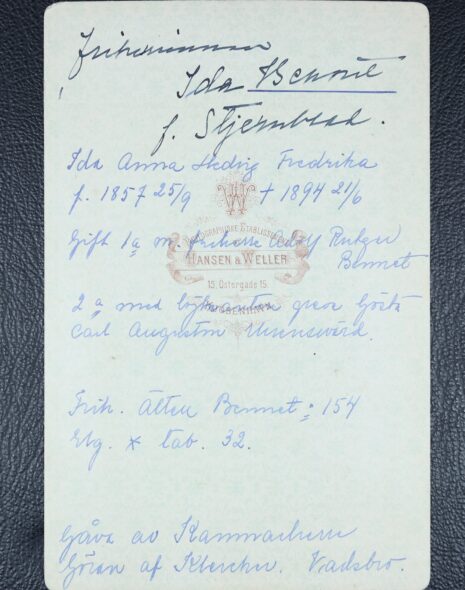 Friherrinnan
Ida Bennet
f. Stjernblad.
Ida Anna Hedvig Fredrika
f. 1857 25/9 † 1894 21/6
Gift 1a m. friherre Adolf Rutger
Bennet
PHOTOGRAPHISKE ETABLISSEMENT
HANSEN & WELLER
15. Östergade 15.
KJØBENHAVN.
2a med löjtnanten greve Gösta
Carl August Ehrensvärd.
Frih. ätten Bennet: 154
Elg. * tab. 32.
Gåva av Kammarherre
Göran af Klercker. Vadsbro.